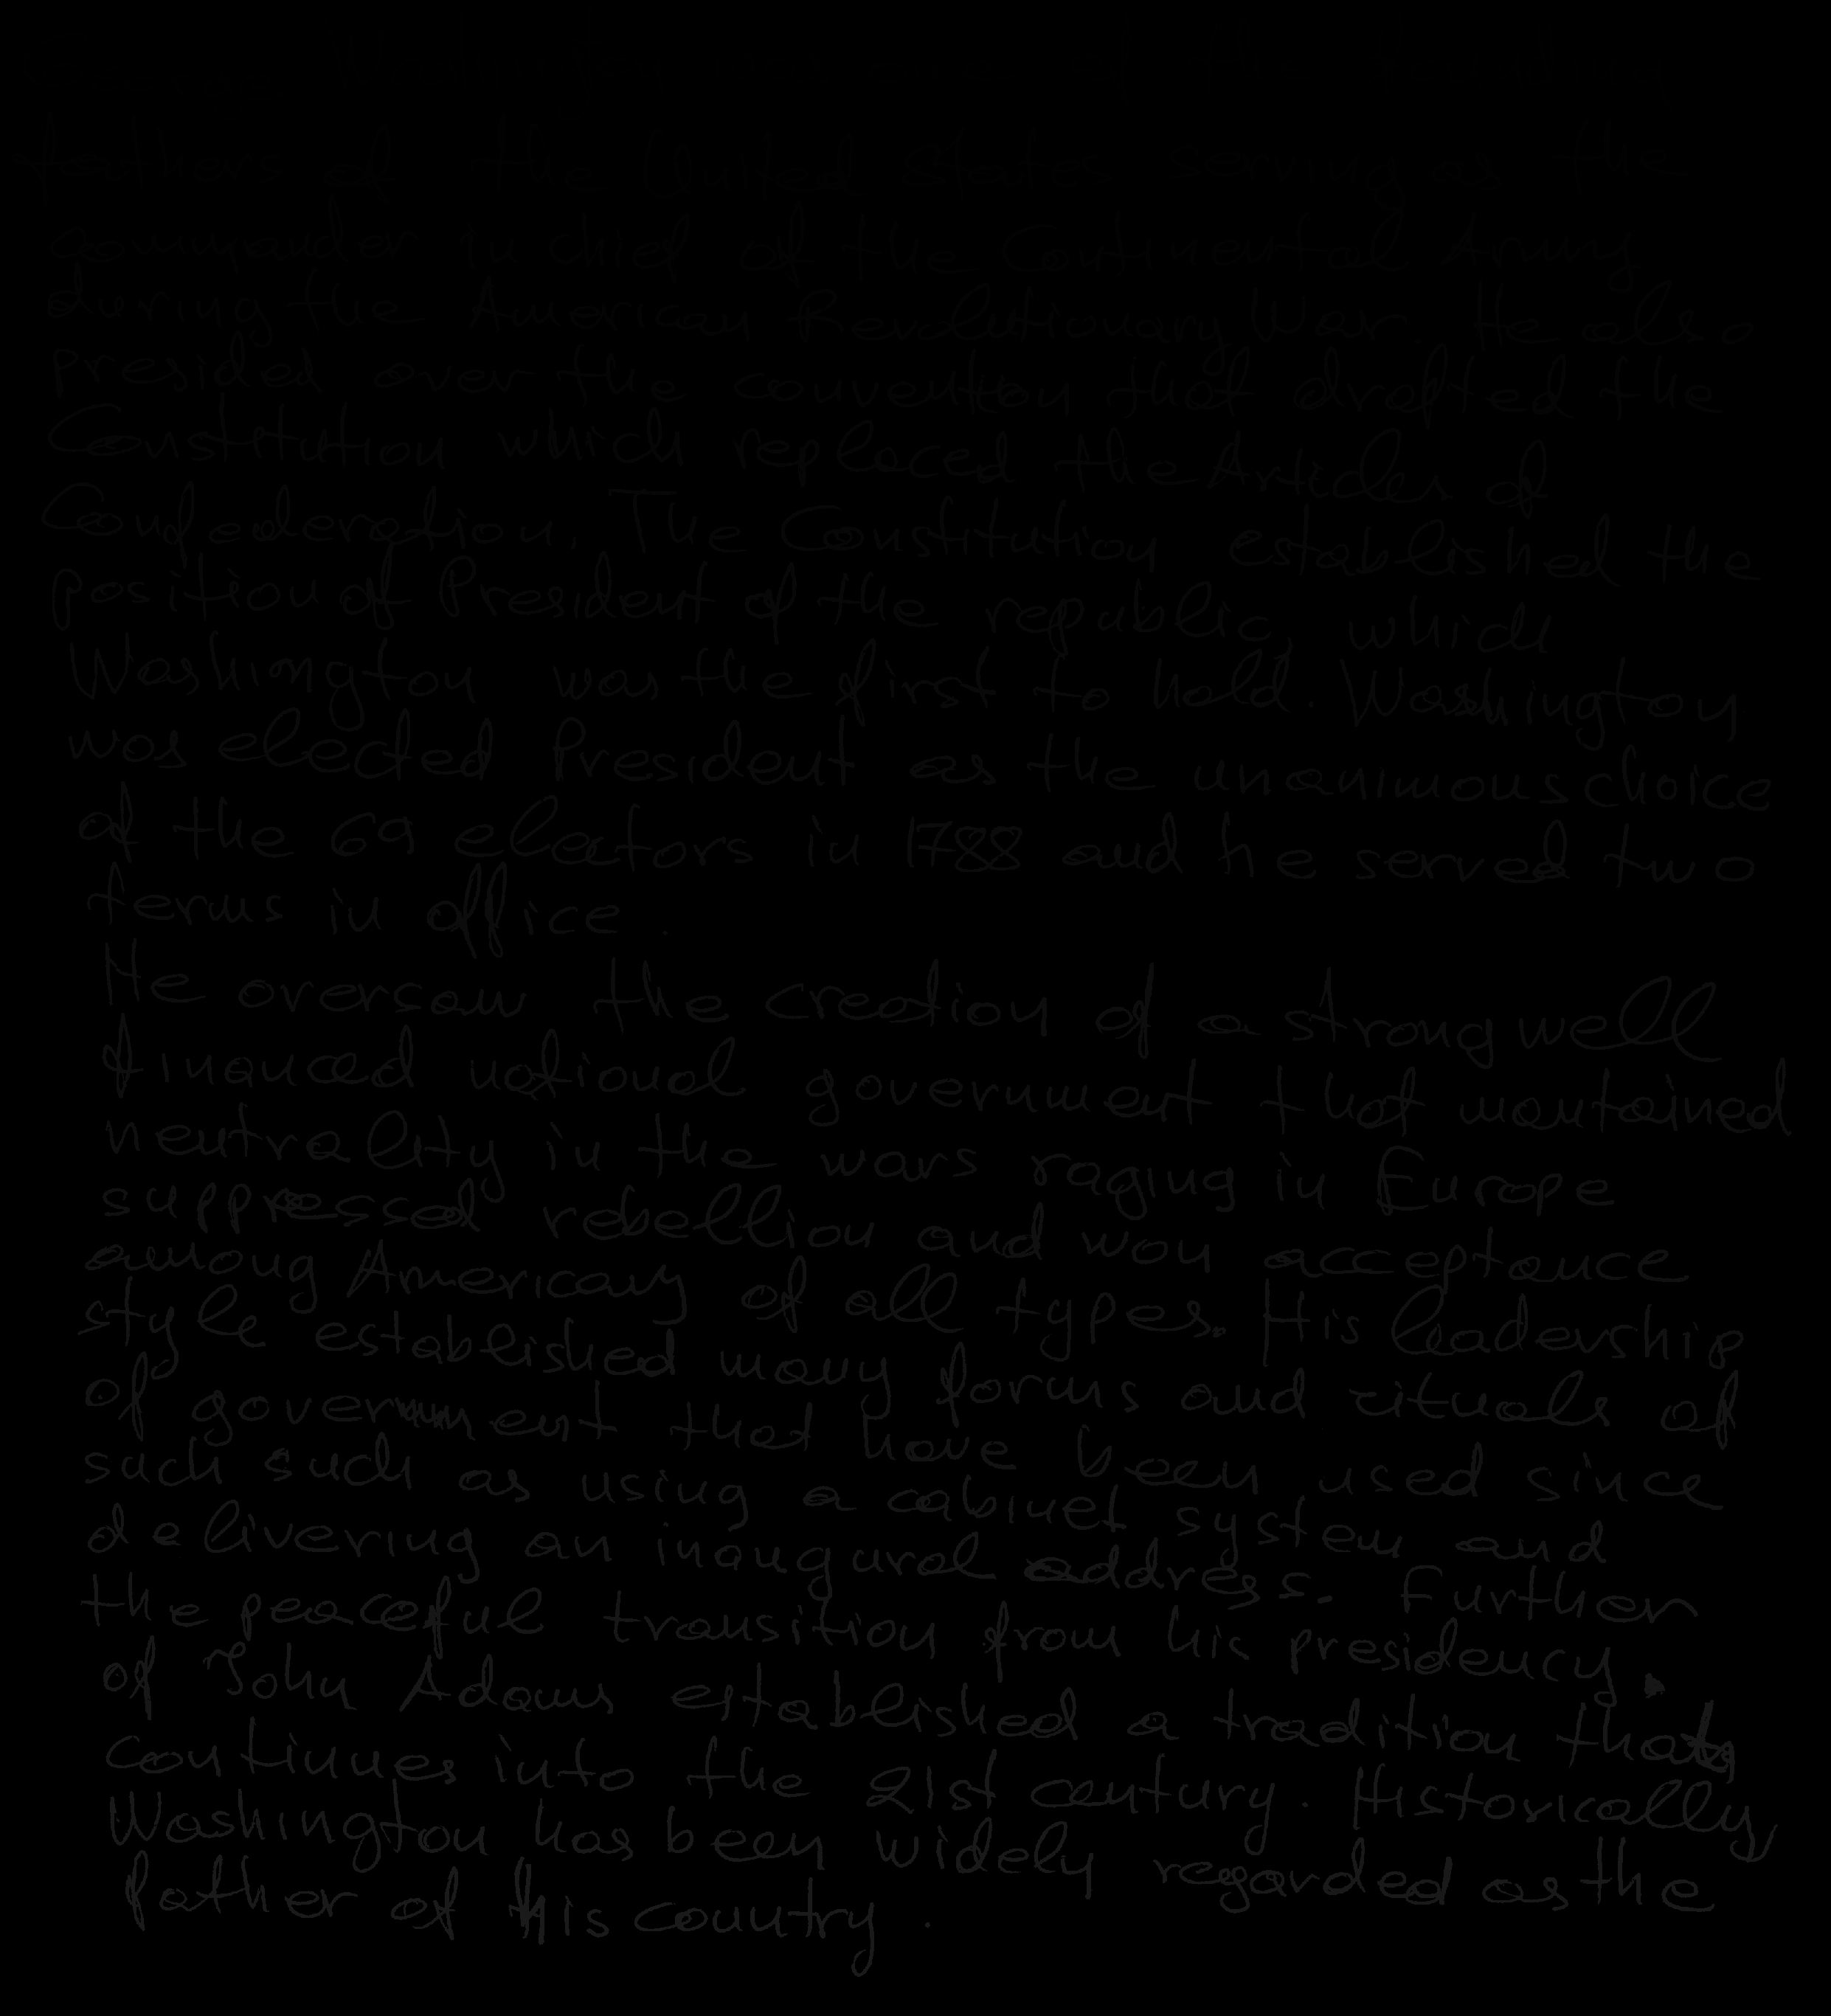 fathers of the United States serving as the
commander in chief of the Continental Army
during the American Revolutionary War. He also
presided over the convention that drafted the
Constitution which replaced the Articles of
Confederation. The Constitution established the
position of President of the republic, which
Washington was the first to hold. Washington
was elected President as the unanimous choice
of the 69 electors in 1788 and he served two
terms in office.
He oversaw the creation of a strong well
financed national government that mantained
neutrality in the wars raging in Europe
suppressed rebellion and won acceptance
among Americans of all types. His leadership
style established many forms and rituals of
of government that have been used since
such such as using a cabinet system and
delivering an inaugural address. Further
the peaceful transition from his presidency
of John Adams established a tradition that
continues into the 21st century. Historically
Washington has been widely regarded as the
father of his country.